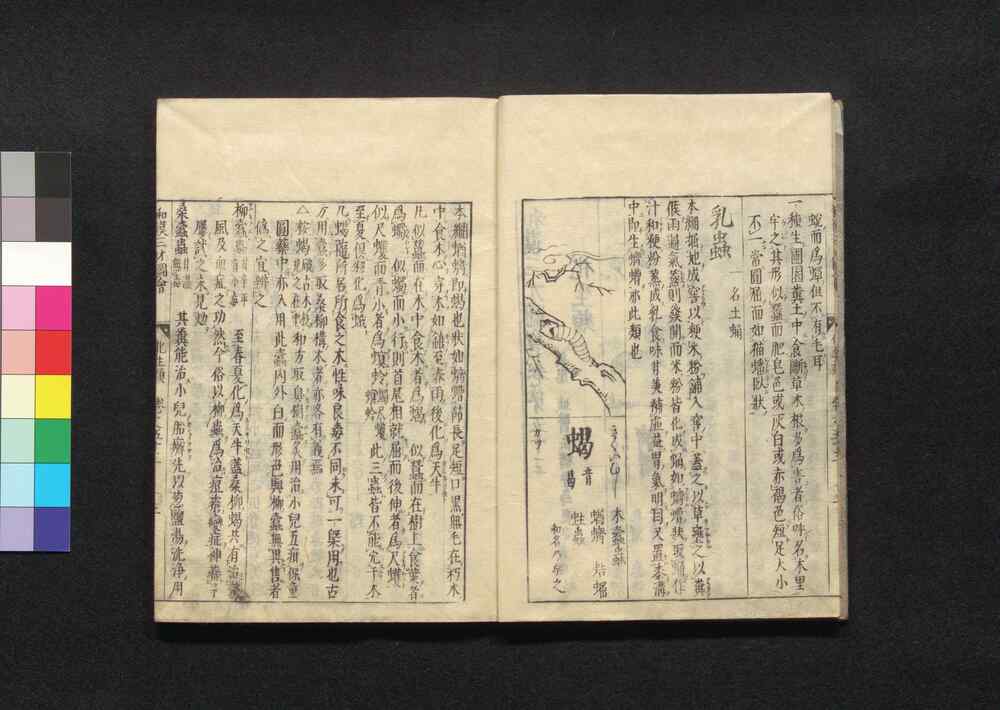 蜕而為蟬但不有毛耳
一種生園圃糞土中食斷草木根多為害者俗呼名木里
牟之其形似蠶而肥皂色或灰白或赤褐色短足大小
不一當圓屈而如猫蟠臥狀
乳蟲
一名土蛹
本綱掘地成窖以粳米粉鋪入窖中蓋之以草壅之以糞
候雨過氣蒸則發開而米粉皆化成蛹如蠐螬狀取蛹作
汁和粳粉蒸成乳食味甘美補脾益胃氣明目又置黍溝
中即生蠐螬亦此類也
蝎
音曷
木蠹蟲
蝤蠐 蛣𧌑
蛀蟲
和名乃牟之
本綱蝤蠐即蝎也狀如蠐螬節長足短口黑無毛在朽木
中食木心穿木如錐至春雨後化為天牛
凡似蠶而在木中食木者為蝎 似蠶而在樹上食葉者
為蠋 似蠋而小行則首尾相就屈而後伸者為尺蠖
似尺蠖而青小者為螟蛉 此三蟲皆不能穴于木
至夏俱羽化為蛾
凡蝎隨所居所食之木性味良毒不同未可一槩用也古
方用蠹多取桑柳構木者亦各有義焉
圓藥中亦入用此蠹內外白而形色與柳蠹無異售者
偽之宜辨之
柳蠹蟲 至春夏化為天牛蓋桑柳蝎共有治
風及血症之功然今俗以柳蟲為治疳
屢試之未見効
桑蠹蟲 其糞能治小兒胎癬先以葱鹽湯洗淨用
和漢三才圖會
化生類